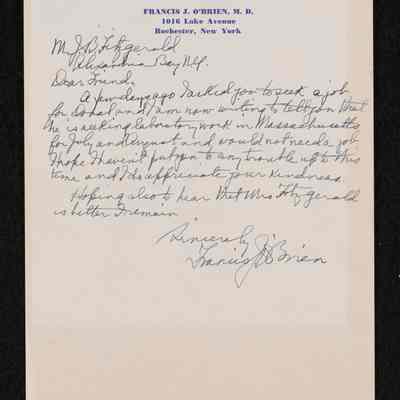 FRANCIS J. O'BRIEN, M. D.
1016 Lake Avenue
Rochester, New York
Mr J. B. Fitzgerald
Alexandria Bay N.Y.
Dear Friend,
A few days ago I asked you to seek a job
for Donal and I am now writing to tell you that
he is seeking laboratory work in Massachusetts
for July and August and would not need a job.
I hope I haven't put you to any trouble up to this
time and I do appreciate your kindness.
Hoping also to hear that Mrs Fitzgerald
is better I remain
Sincerely
Francis J O'Brien